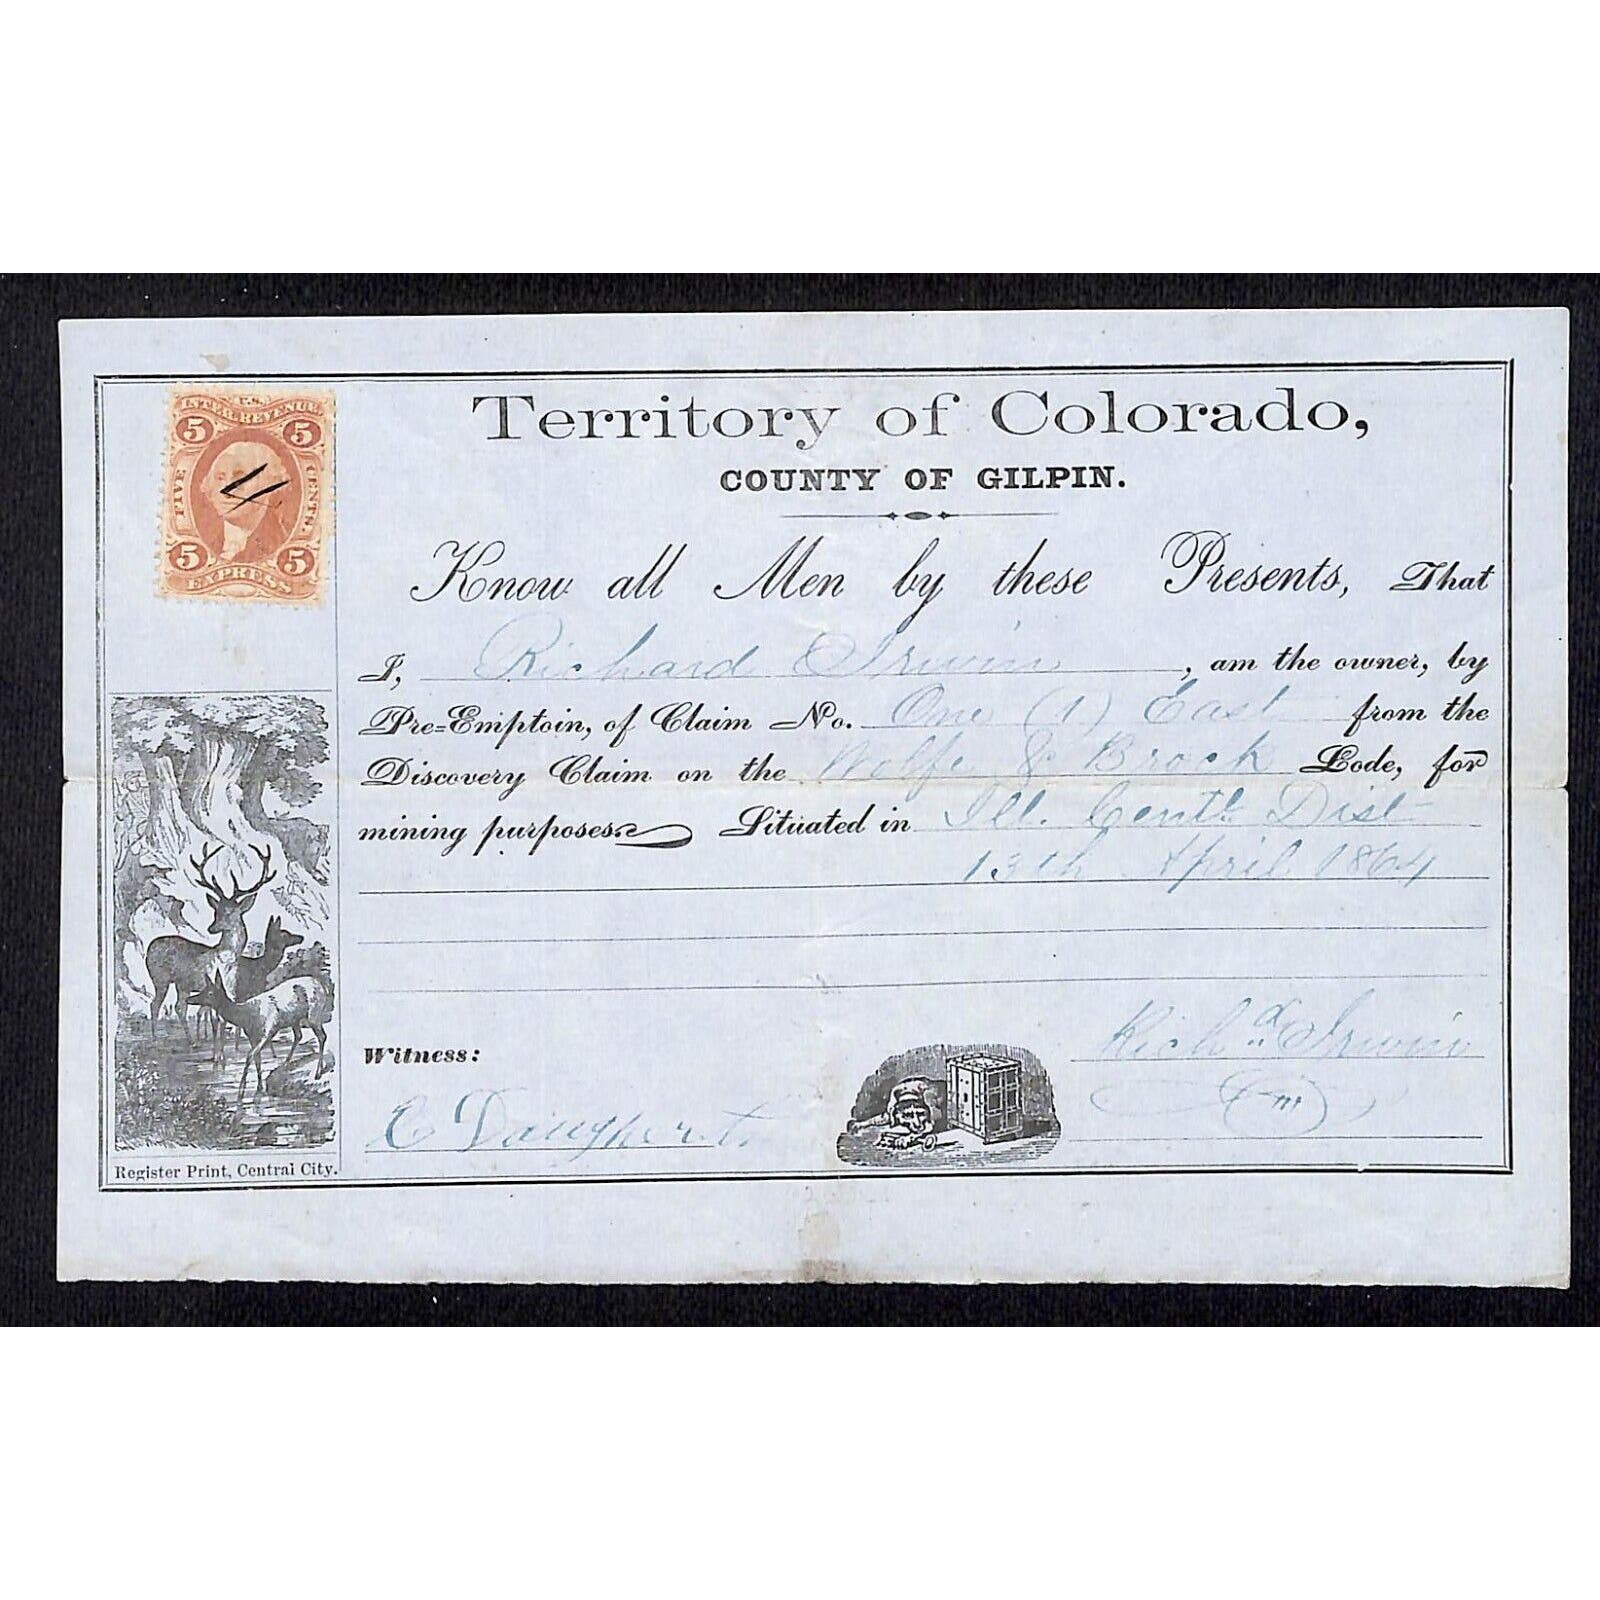 U.S.
INTER. REVENUE.
5 5
FIVE CENTS.
5 5
EXPRESS
Territory of Colorado,
COUNTY OF GILPIN.
Know all Men by these Presents, That
I, Richard Irwin, am the owner, by
Pre-Emptoin, of Claim No. One (1) East from the
Discovery Claim on the Wolfe & Brock Lode, for
mining purposes. Situated in Ill. Centl. Dist
13th April 1864
Richd. Irwin
Witness:
E Daugherty
Register Print, Central City.